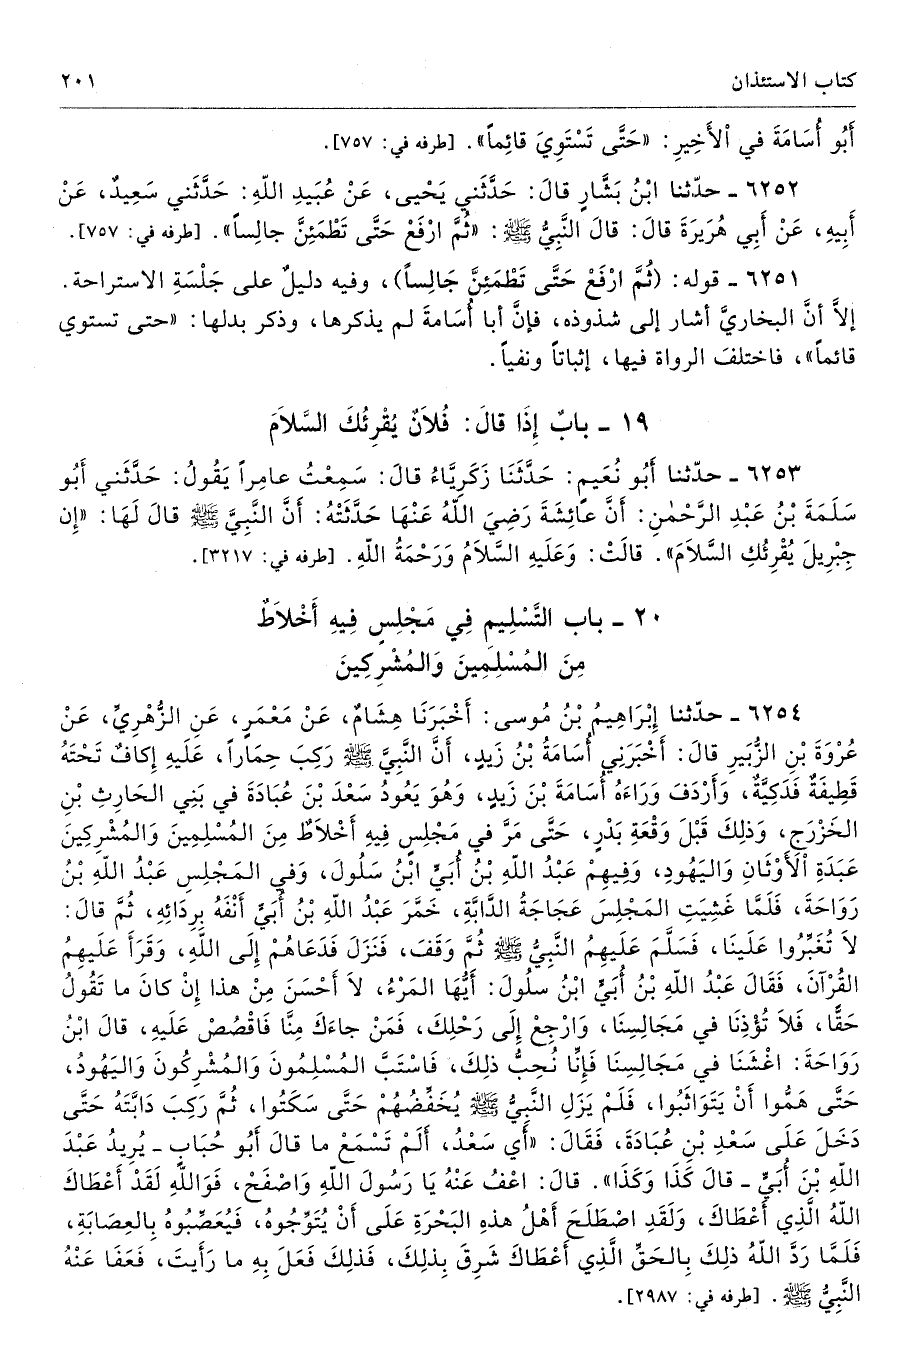 كتاب الاستئذان ٢٠١
أَبُو أُسَامَةَ في الْأَخِيرِ: «حَتَّى تَسْتَوِيَ قائِماً». [طرفه في: ٧٥٧].
٦٢٥٢ ـ حدّثنا ابْنُ بَشَّارٍ قالَ: حَدَّثَنِي يَحْيى، عَنْ عُبَيدِ اللهِ: حَدَّثَني سَعِيدٌ، عَنْ
أَبِيهِ، عَنْ أَبِي هُرَيرَةَ قالَ: قالَ النَّبِيُّ ﷺ: «ثُمَّ ارْفَعْ حَتَّى تَطْمَئِنَّ جالِساً». [طرفه في: ٧٥٧].
٦٢٥١ ـ قوله: (ثُمَّ ارْفَعْ حَتَّى تَطْمَئِنَّ جَالِساً)، وفيه دليلٌ على جَلْسَةِ الاستراحة.
إلاَّ أنَّ البخاريَّ أشار إلى شذوذه، فإنَّ أبا أُسَامةَ لم يذكرها، وذكر بدلها: «حتى تستوي
قائماً»، فاختلفَ الرواة فيها، إثباتاً ونفياً.
١٩ ـ بابٌ إِذَا قالَ: فُلاَنٌ يُقْرِئُكَ السَّلاَمَ
٦٢٥٣ ـ حدّثنا أَبُو نُعَيمٍ: حَدَّثَنَا زَكَرِيَّاءُ قالَ: سَمِعْتُ عامِراً يَقُولُ: حَدَّثَني أَبُو
سَلَمَةَ بْنُ عَبْدِ الرَّحْمٰنِ: أَنَّ عائِشَةَ رَضِيَ اللهُ عَنْهَا حَدَّثَتْهُ: أَنَّ النَّبِيَّ ﷺ قالَ لَهَا: «إِن
جِبْرِيلَ يُقْرِئُكِ السَّلاَمَ». قالَتْ: وَعَلَيهِ السَّلاَمُ وَرَحْمَةُ اللهِ. [طرفه في: ٣٢١٧].
٢٠ ـ باب التَّسْلِيمِ فِي مَجْلِسٍ فِيهِ أَخْلاَطٌ
مِنَ المُسْلِمِينَ وَالمُشْرِكِينَ
٦٢٥٤ ـ حدّثنا إِبْرَاهِيمُ بْنُ مُوسى: أَخْبَرَنَا هِشَامٌ، عَنْ مَعْمَرٍ، عَنِ الزُّهْرِيِّ، عَنْ
عُرْوَةَ بْنِ الزُّبَيرِ قالَ: أَخْبَرَنِي أُسَامَةُ بْنُ زَيدٍ، أَنَّ النَّبِيَّ ﷺ رَكِبَ حِمَاراً، عَلَيهِ إِكافٌ تَحْتَهُ
قَطِيفَةٌ فَدَكِيَّةٌ، وَأَرْدَفَ وَرَاءَهُ أُسَامَةَ بْنَ زَيدٍ، وَهُوَ يَعُودُ سَعْدَ بْنَ عُبَادَةَ في بَنِي الحَارِثِ بْنِ
الخَزْرَجِ، وَذلِكَ قَبْلَ وَقْعَةِ بَدْرٍ، حَتَّى مَرَّ في مَجْلِسٍ فِيهِ أَخْلاَطٌ مِنَ المُسْلِمِينَ وَالمُشْرِكِينَ
عَبَدَةِ الْأَوْثَانِ وَاليَهُودِ، وَفِيهِمْ عَبْدُ اللهِ بْنُ أُبَيٍّ ابْنُ سَلُولَ، وَفي المَجْلِسِ عَبْدُ اللهِ بْنُ
رَوَاحَةَ، فَلَمَّا غَشِيَتِ المَجْلِسَ عَجَاجَةُ الدَّابَّةِ، خَمَّرَ عَبْدُ اللهِ بْنُ أُبَيٍّ أَنْفَهُ بِرِدَائِهِ، ثُمَّ قالَ:
لاَ تُغَبِّرُوا عَلَينَا، فَسَلَّمَ عَلَيهِمُ النَّبِيُّ ﷺ ثُمَّ وَقَفَ، فَنَزَلَ فَدَعَاهُمْ إِلَى اللهِ، وَقَرَأَ عَلَيهِمُ
القُرْآنَ، فَقَالَ عَبْدُ اللهِ بْنُ أُبَيٍّ ابْنُ سلُولَ: أَيُّهَا المَرْءُ، لاَ أَحْسَنَ مِنْ هذا إِنْ كانَ ما تَقُولُ
حَقًّا، فَلاَ تُؤْذِنَا في مَجَالِسِنَا، وَارْجِعْ إِلَى رَحْلِكَ، فَمَنْ جاءَكَ مِنَّا فَاقْصُصْ عَلَيهِ، قالَ ابْنُ
رَوَاحَةَ: اغْشَنَا في مَجَالِسِنَا فَإِنَّا نُحِبُّ ذلِكَ، فَاسْتَبَّ المُسْلِمُونَ وَالمُشْرِكُونَ وَاليَهُودُ،
حَتَّى هَمُّوا أَنْ يَتَوَاثَبُوا، فَلَمْ يَزَلِ النَّبِيُّ ﷺ يُخَفِّضُهُمْ حَتَّى سَكَتُوا، ثُمَّ رَكِبَ دَابَّتَهُ حَتَّى
دَخَلَ عَلَى سَعْدِ بْنِ عُبَادَةَ، فَقَالَ: «أَي سَعْدُ، أَلَمْ تَسْمَعْ ما قالَ أَبُو حُبَابٍ ـ يُرِيدُ عَبْدَ
اللهِ بْنَ أُبَيٍّ ـ قالَ كَذَا وَكَذَا». قالَ: اعْفُ عَنْهُ يَا رَسُولَ اللهِ وَاصْفَحْ، فَوَاللهِ لَقَدْ أَعْطَاكَ
اللهُ الَّذِي أَعْطَاكَ، وَلَقَدِ اصْطَلَحَ أَهْلُ هذهِ البَحْرَةِ عَلَى أَنْ يُتَوِّجُوهُ، فَيُعَصِّبُوهُ بِالعِصَابَةِ،
فَلَمَّا رَدَّ اللهُ ذلِكَ بِالحَقِّ الَّذِي أَعْطَاكَ شَرِقَ بِذلِكَ، فَذلِكَ فَعَلَ بِهِ ما رَأَيتَ، فَعَفَا عَنْهُ
النَّبِيُّ ﷺ. [طرفه في: ٢٩٨٧].